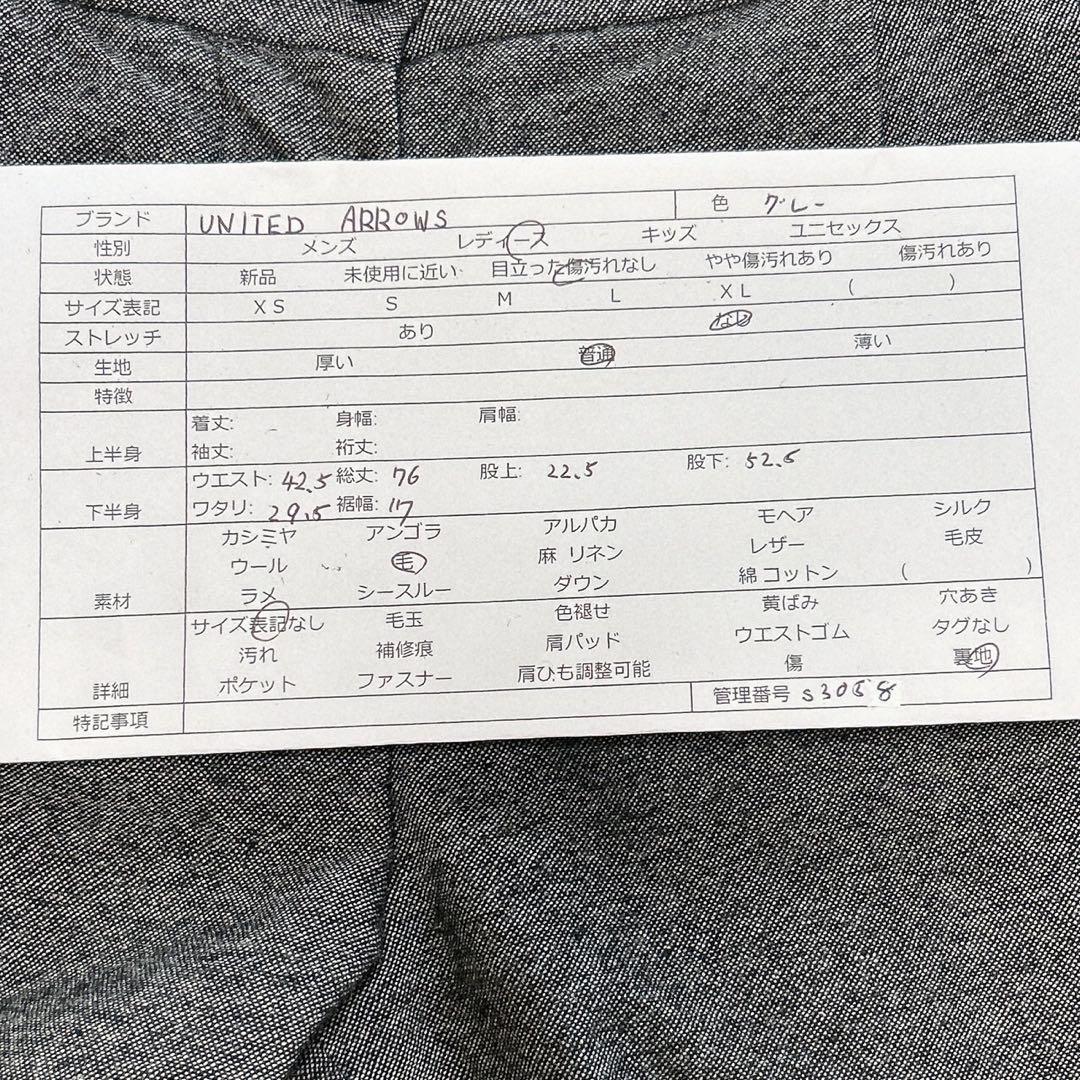 ブランド UNITED ARROWS 色 グレー
性別 メンズ レディース キッズ ユニセックス
状態 新品 未使用に近い 目立った傷汚れなし やや傷汚れあり 傷汚れあり
サイズ表記 XS S M L XL ( )
ストレッチ あり なし
生地 厚い 普通 薄い
特徴
上半身 着丈: 身幅: 肩幅:
袖丈: 裄丈:
下半身 ウエスト: 42.5 総丈: 76 股上: 22.5 股下: 52.5
ワタリ: 29.5 裾幅: 17
素材 カシミヤ アンゴラ アルパカ モヘア シルク
ウール 毛 麻 リネン レザー 毛皮
ラメ シースルー ダウン 綿 コットン ( )
詳細 サイズ表記なし 毛玉 色褪せ 黄ばみ 穴あき
汚れ 補修痕 肩パッド ウエストゴム タグなし
ポケット ファスナー 肩ひも調整可能 傷 裏地
特記事項 管理番号 S3058